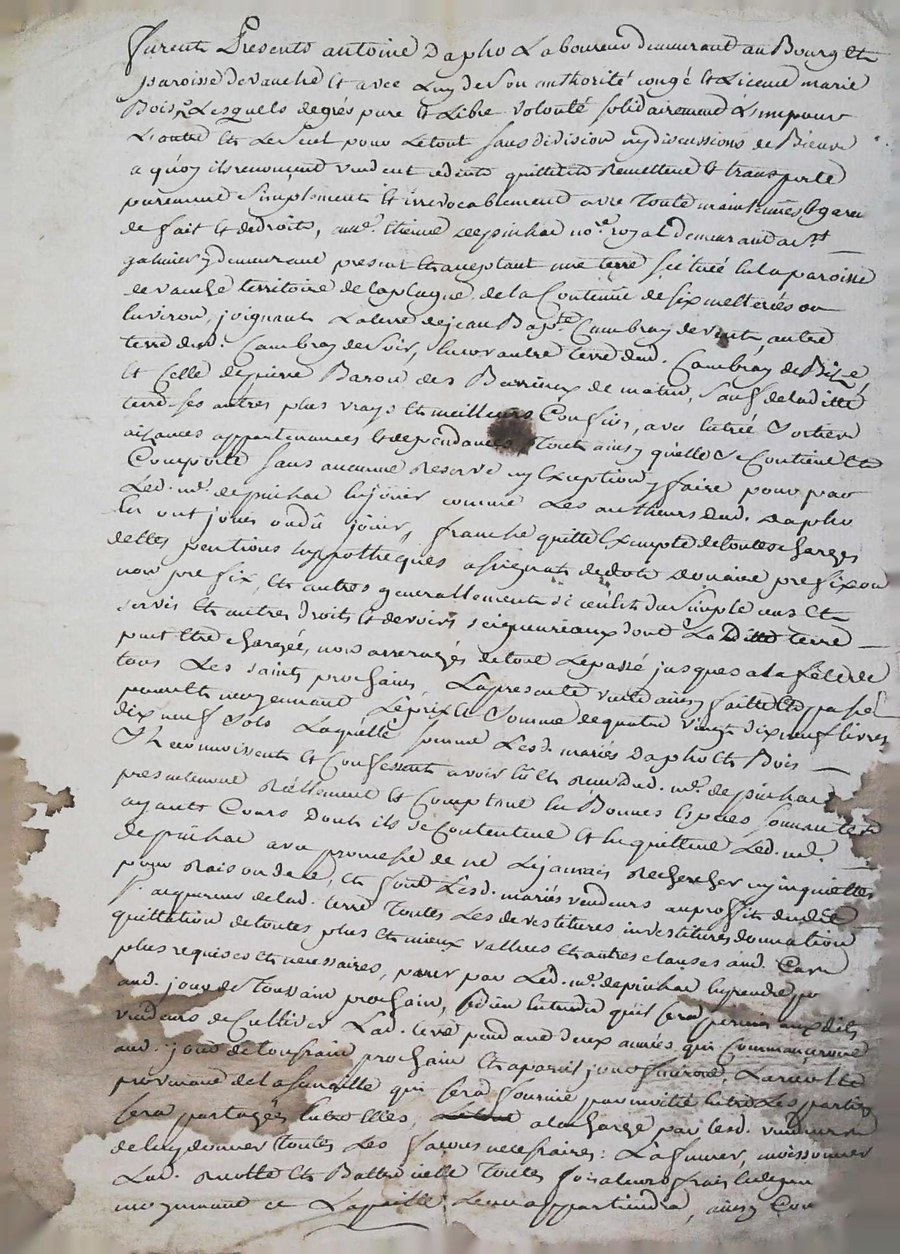 furent Presents antoine Dapho Laboureur demeurant au Bourg Et
paroisse de vauche Et avec Luy de son authorité congé Et Licence marie
Bois, Lesquels de grés pure Et Libre volonté solidairement L'un pour
L'autre Et Le seul pour Le tout sans division ny discussions de Biens
a quoy ils renoncent vendent cedent quittent Remettent Et transporte
purement simplement Et irrevocablement avec Toute maintenues Et garen
de fait Et de droits, aud. Etienne depinhac no.re royal demeurand a St
galmier y demeurant present Et acceptant une terre scituée En La paroisse
de vauche territoire de Laplagne de La Contenue de six metterées ou
Environ, joignant La terre de jean Bap.te Cambray de vent, autre
terre dud. Cambray de soir, Encor autre terre dud. Cambray de Bize
Et Celle de pierre Barou des Barrieux de matin, sauf de La ditte
terre ses autres plus vrays Et meilleurs Confins, avec Entrée sortie
aizances appartenances Et dependances, Tout ainsy qu'elle se Contient Et
Comporte sans aucune Reserve ny Exception y faire pour par
Led. m.e depinhac En jouir comme Les autheurs dud. Dapho
En ont jouis ou dû jouir, franche quitte Exempte de toutes charges
debtes pentions hypotheques assignats de dote Douaire prefix ou
non prefix, Et autres generallement si ce n'est du simple cens Et
servis Et autres Droits Et devoirs seigneuriaux dont La Ditte terre
peut Etre chargée, nois arreragés de tout Le passé jusques a la fête de
tous Les saints prochain, La presente vente ainsy faitte Et passé
moyennant Le prix Et somme de quatre vingt dix neuf Livres
dix neuf sols Laquelle somme Les d. mariés Dapho Et Bois
Reconnoissent Et Confessent avoir Eû Et Receu Dud. m.e depinhac
presentement Réellement Et Comptant En Bonnes Espèces sonnantes
ayants Cours Dont ils se Contentent Et En quittent Led. m.e
depinhac avec promesse de ne L'en jamais Rechercher ny inquietter
pour Raison de ce, Et font Lesd. mariés vendeurs au proffit dud.
s. acquereur de Lad. terre Toutes Les devestitures investitures donnation
quittation de toutes plus Et mieux vallues Et autres clauses aud. Cas
plus requises Et necessaires, pour par Led. m.e depinhac En prendre po
aud. jour de Toussaint prochain, Bien Entendu qu'il sera permis aux dits
vendeurs de Cultiver Lad. terre pendant deux années qui Commanceront
aud. jour de toussaint prochain Et a pareil jour finiront, La recolte
provenant de La semaille qui sera fournie par moitié Entre Les parties
sera partagée Entre Elles, a la charge par Lesd. vendeurs
de luy donner toutes Les façons necessaires: La fumer, moissonner
Lad. recolte Et Battre icelle Toutes fois a Leurs frais Et depen
moyennant ce La paille Leur appartiendra, ainsy Con